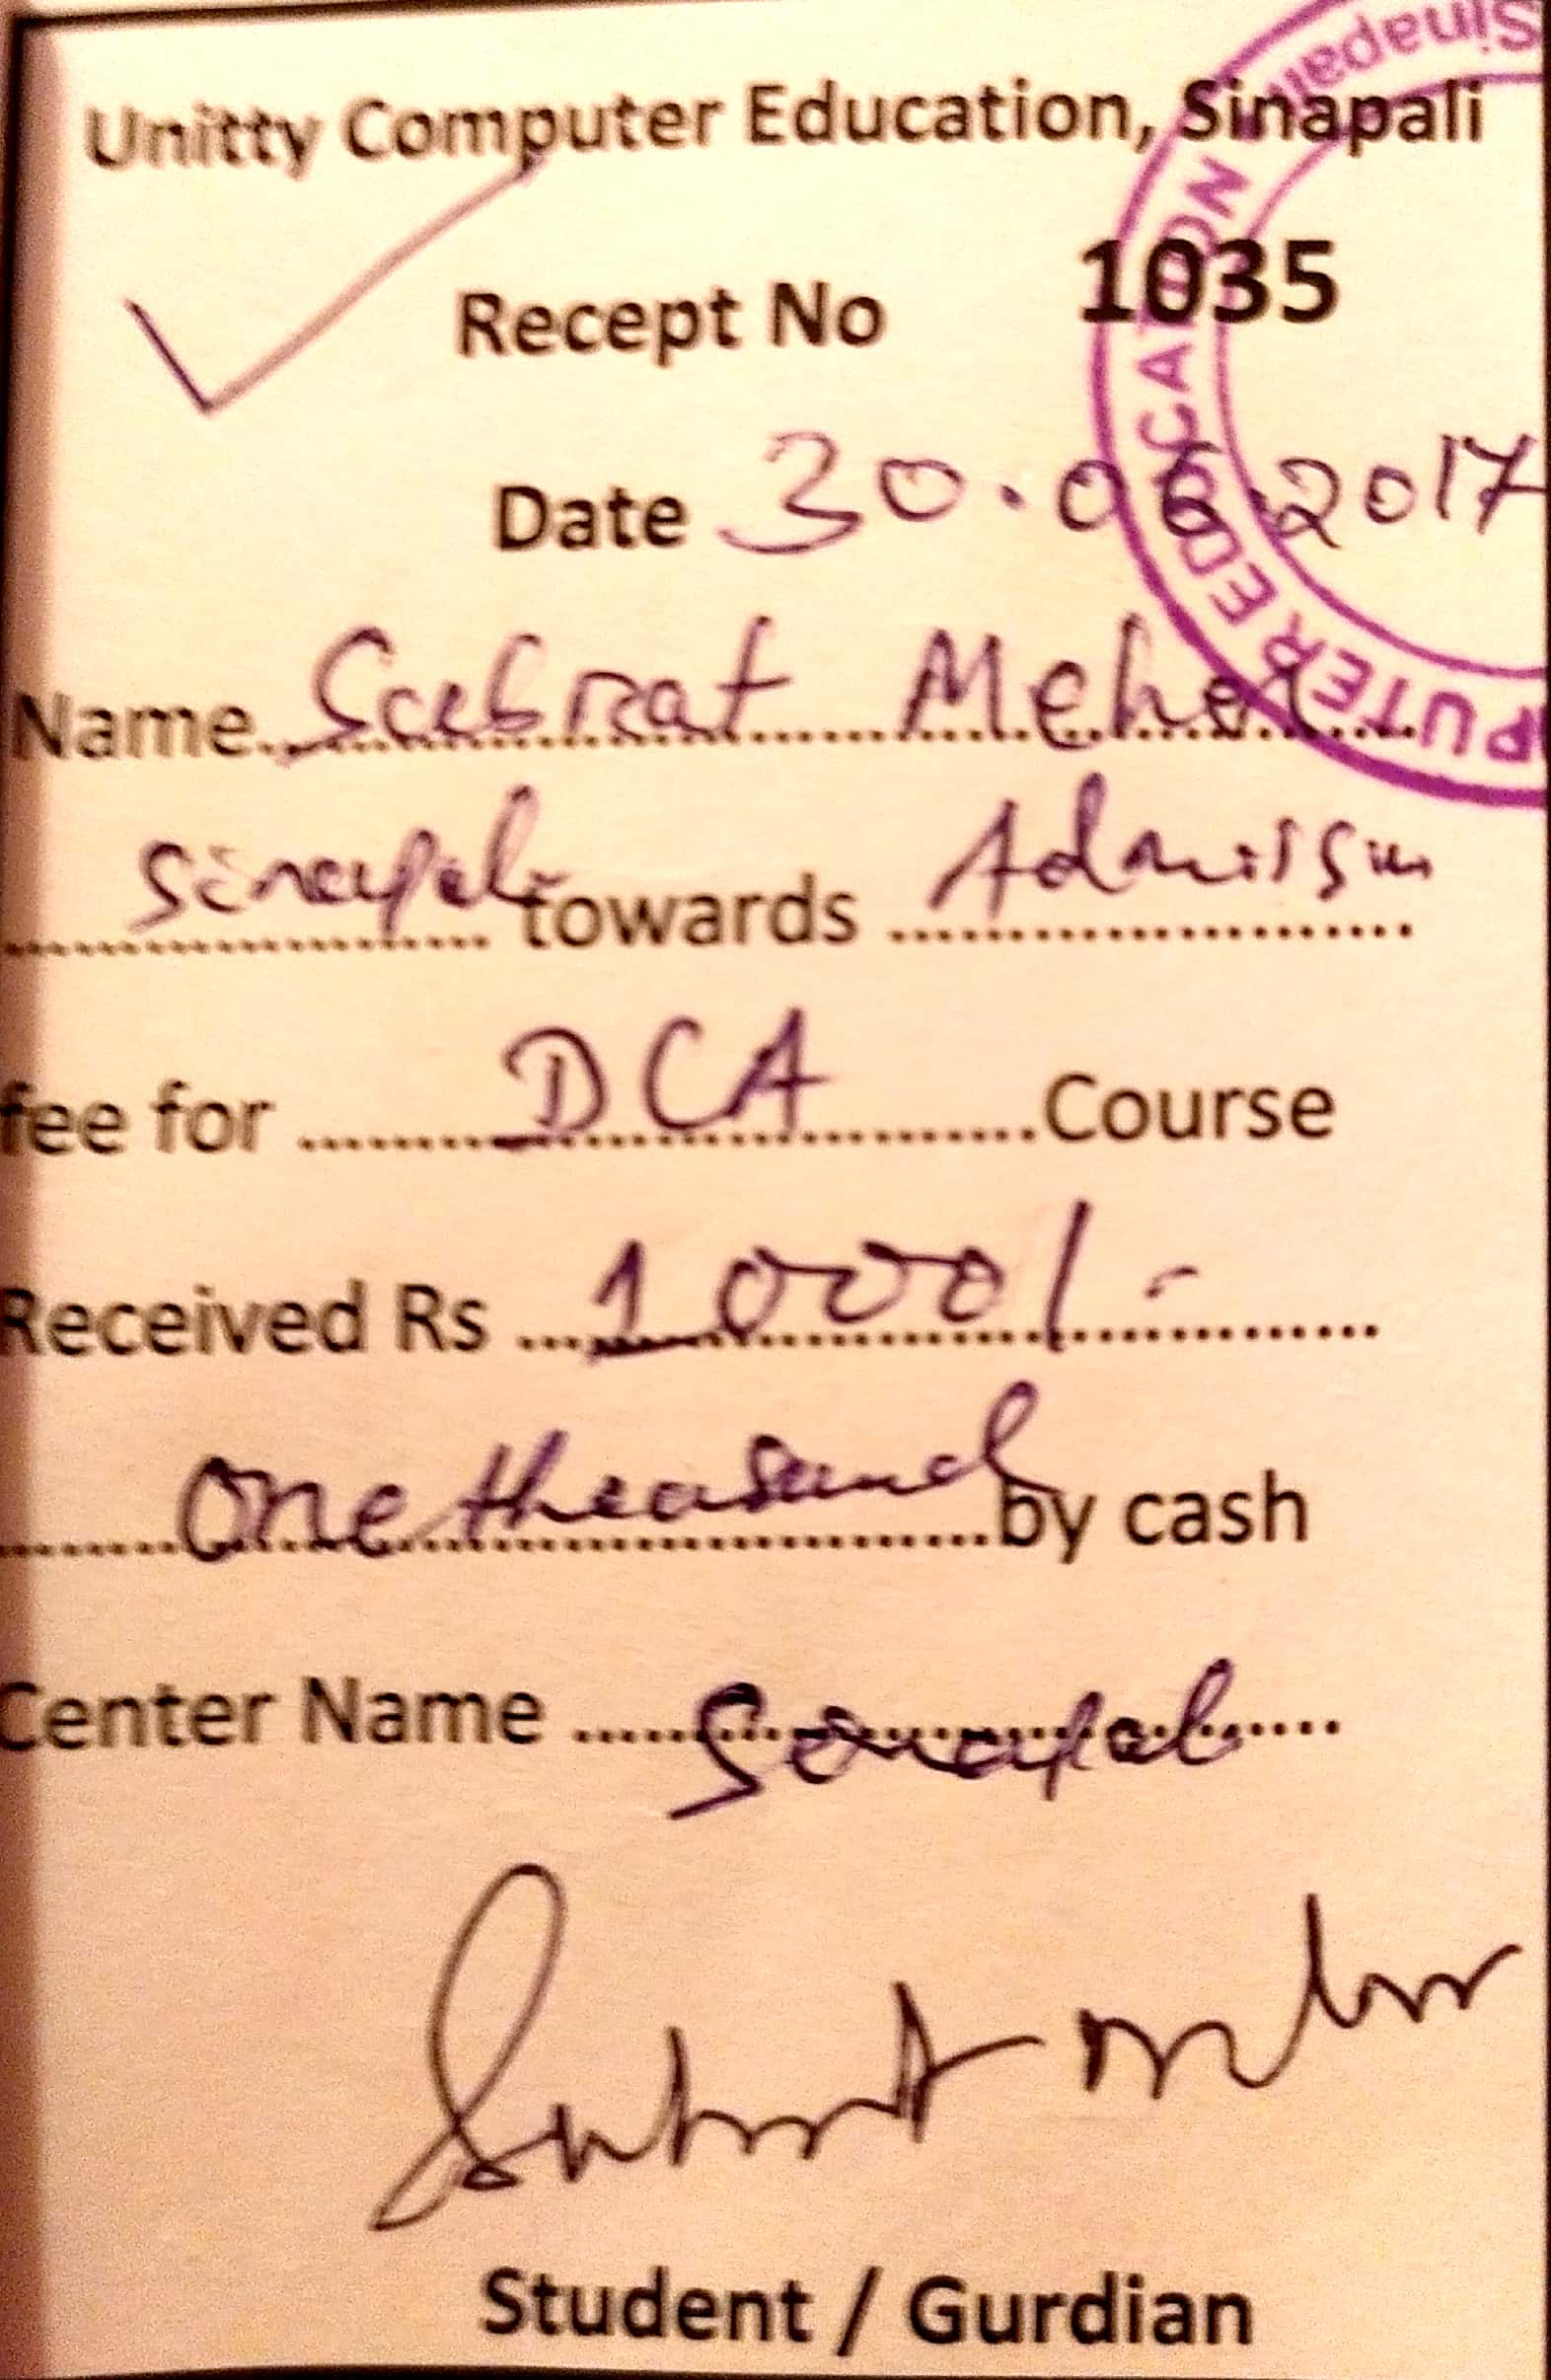 Unitty Computer Education, Sinapali
Recept No 1035
Date 30.06.2017
Name. Subrat Meher
Sinapali towards Admission
fee for DCA Course
Received Rs 1000/-
One thousand by cash
Center Name Sinapali
Student / Gurdian
Sinapali
PUTER EDUCATION